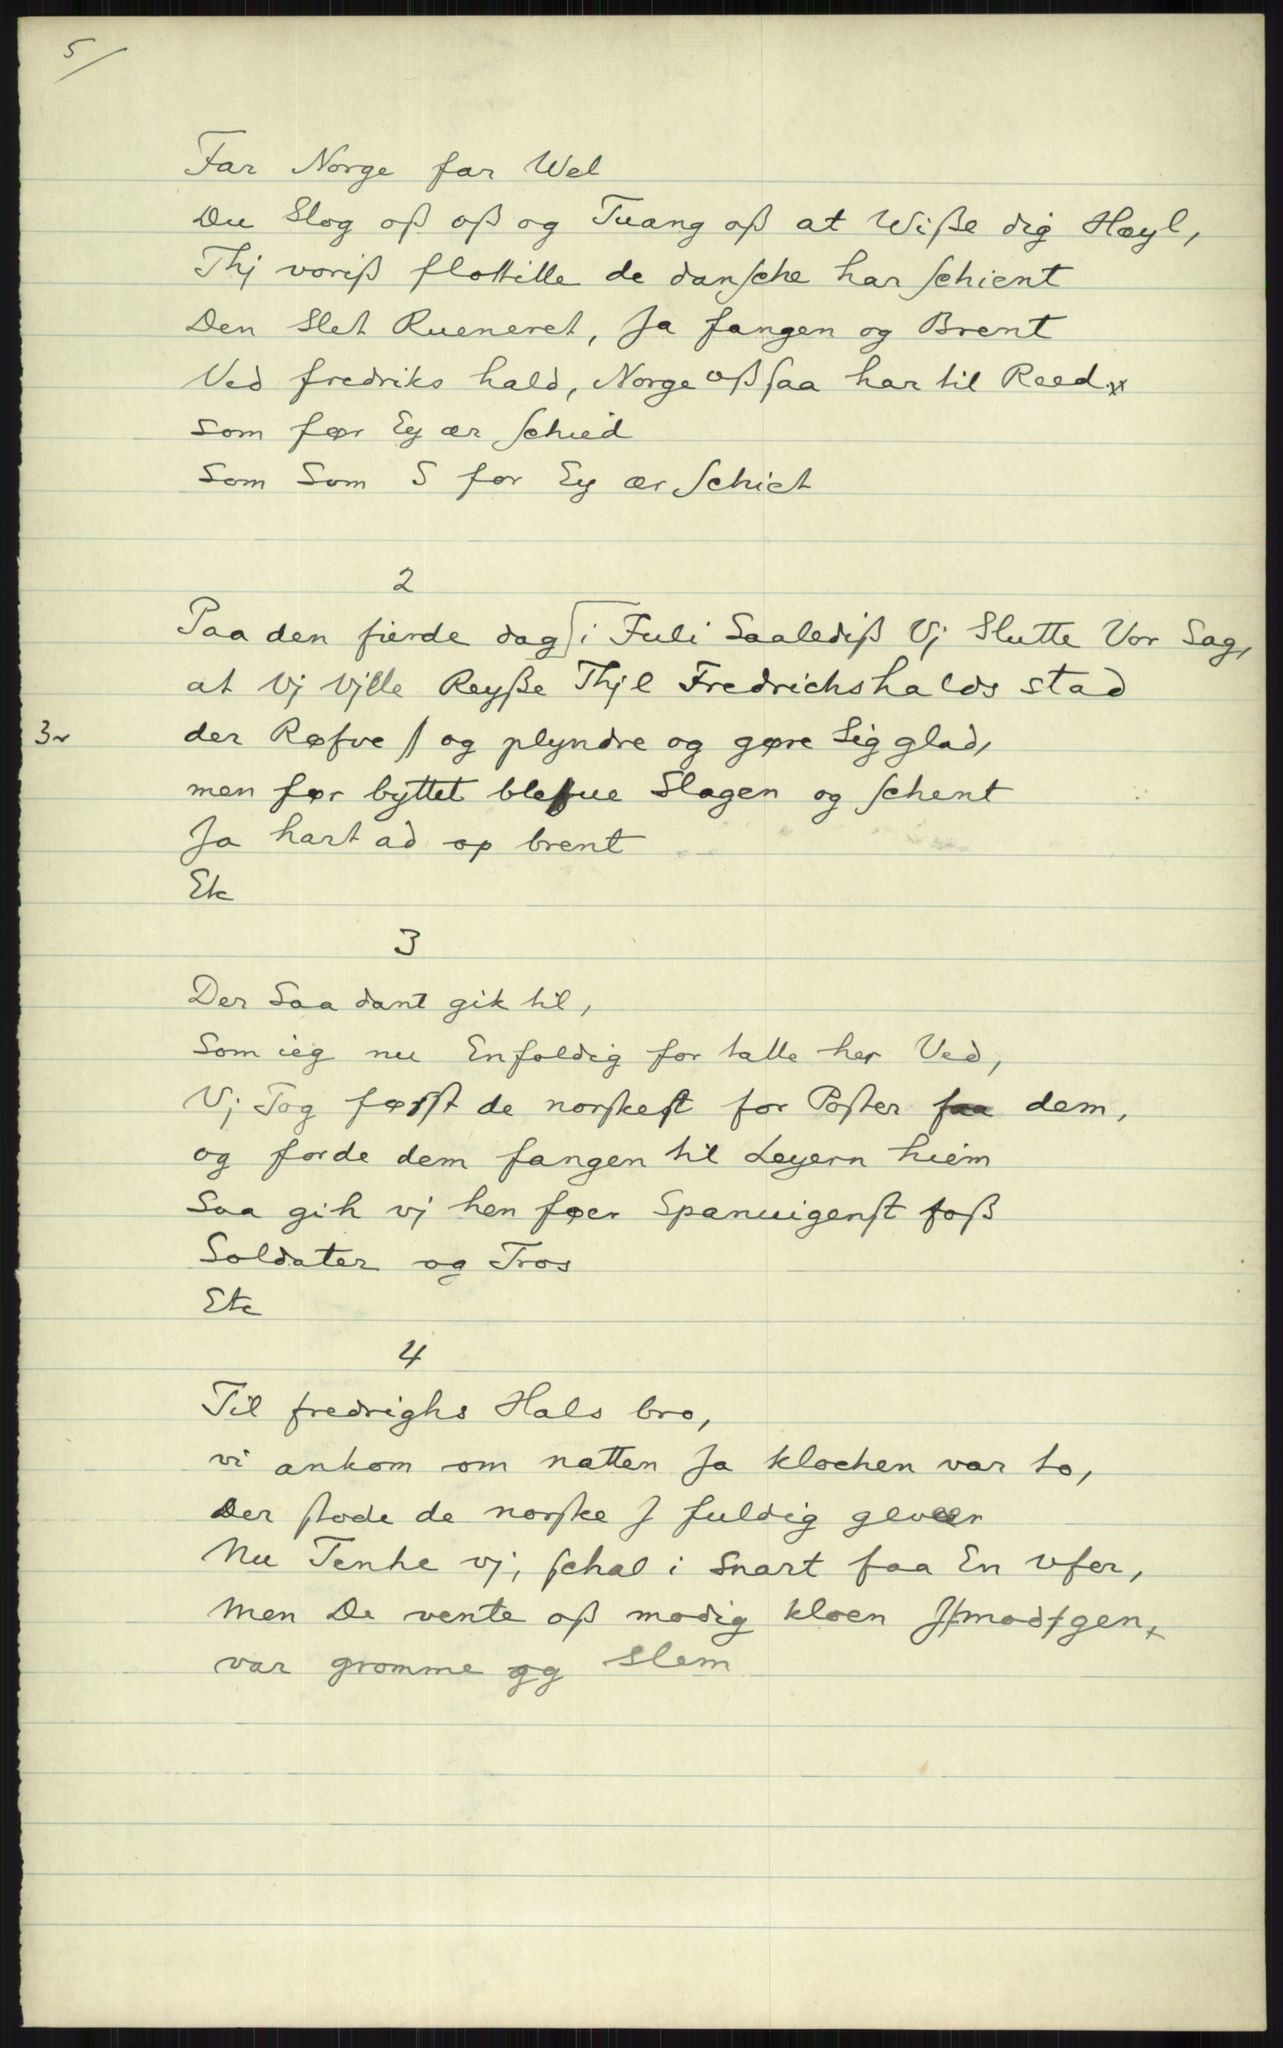 5/
Far Norge far Wel
Du Slog oß oß og Tuang oß at Wiße dig Hæyl,
Thj voriß flottille de dansche har schient
Den Slet Rueneret, Ja fangen og Brent
Ved fredriks hald, Norge oß saa har til Reed
som før Ey ær schied
Som Som S for Ey ær schiet
2
Paa den fierde dag i Juli Saalediß Vj Slutte Vor Sag,
at Vj Vjlle Reyße Thjl Fredrichshalds stad
3v der Røfve og plyndre og gøre Sig glad,
men før byttet blefue Slagen og schent
Ja hart ad op brent
Etc
3
Der Saa dant gik til,
Som ieg nu Enfoldig for talle her Ved,
Vj Tog først de norskest for Poster faa dem,
og førde dem fangen til Leyern hiem
Saa gik vj hen foer Spanuigenst foß
Soldater og Tros
Etc
4
Til fredrighs Hals bro,
vi ankom om natten Ja klochen var to,
Der stode de norske J fuldig geveer
Nu Tenhe vj, schal i Snart faa En vfer,
Men De vente oß modig kloen
var gromme og slem